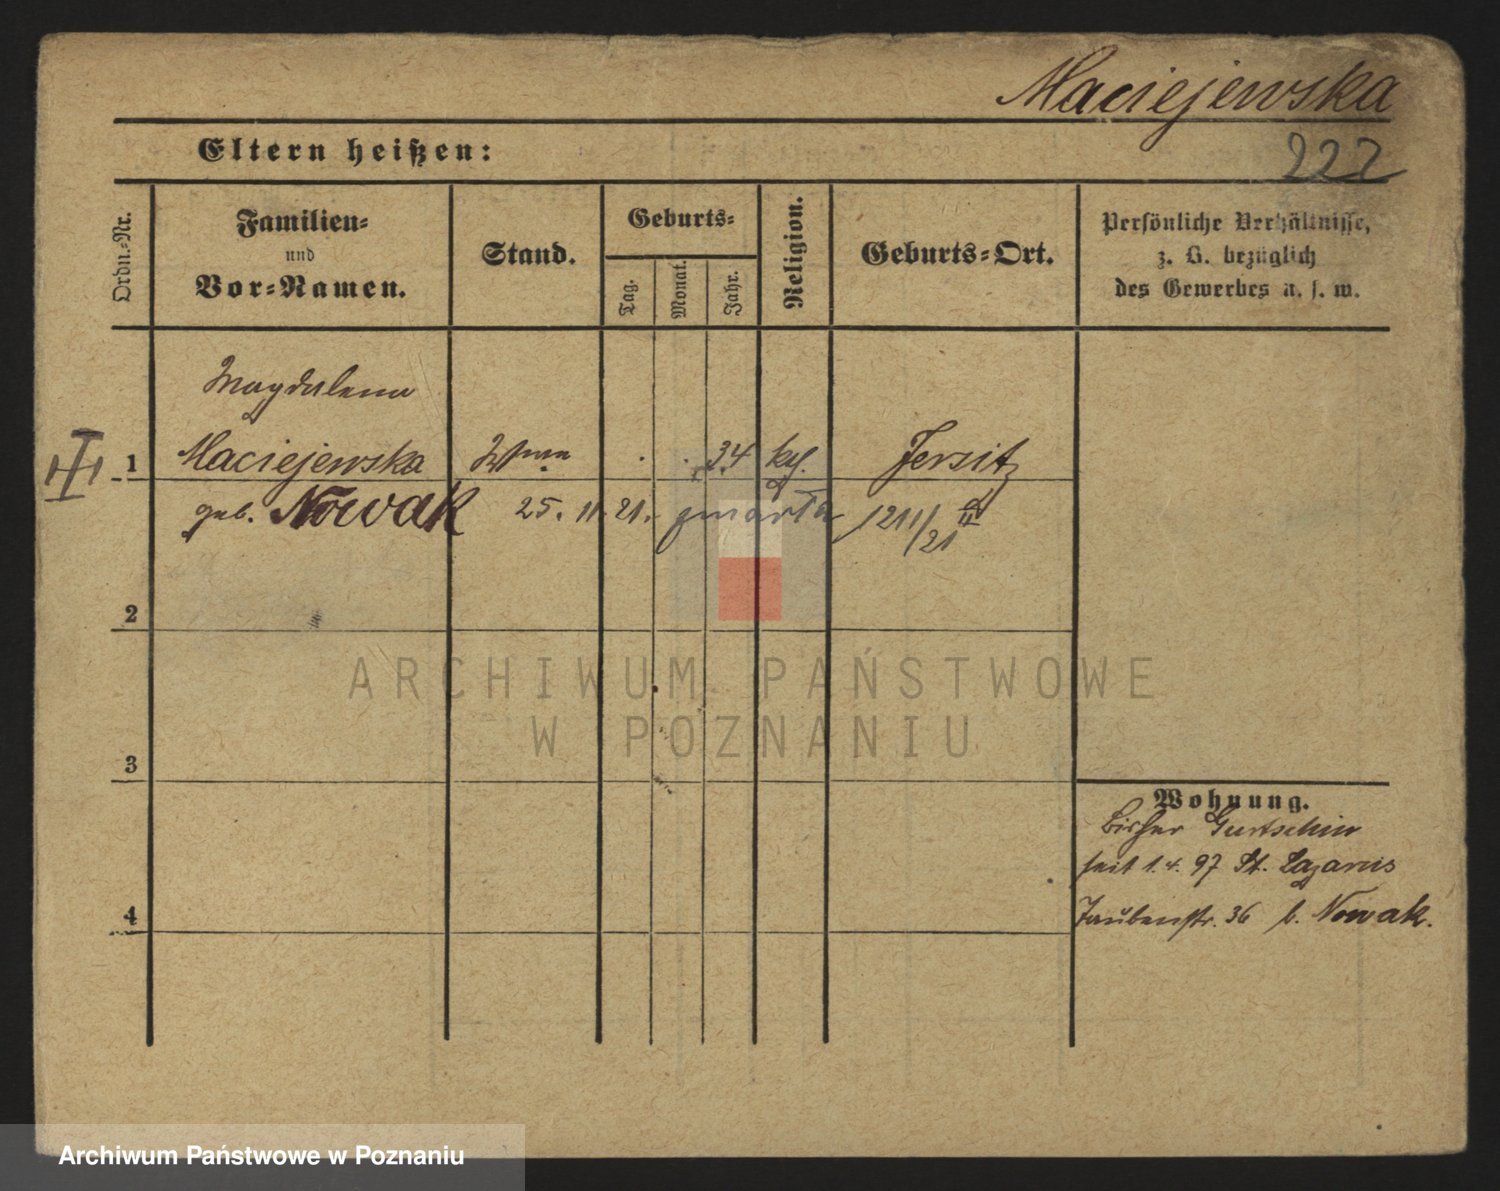 Maciejewska
222
Eltern heißen:
Ordn.-Nr.
Familien-
und
Vor-Namen.
Stand.
Geburts-
Tag.
Monat.
Jahr.
Religion.
Geburts-Ort.
Persönliche Verhältnisse,
z. B. bezüglich
des Gewerbes u. s. w.
Magdalena
1 Maciejewska Wwe . . 34 kf. Jersitz
geb. Nowak 25. 11. 21. gmarła 1211/21
2
3
4
Wohnung.
bisher Gurtschin
seit 1.4.97 St. Lazarus
Taubenstr. 36 b. Nowak.
ARCHIWUM PAŃSTWOWE
W POZNANIU
Archiwum Państwowe w Poznaniu